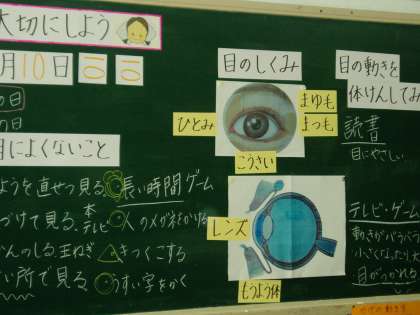 大切にしよう
月10日
目によくないこと
ようを直せつ見る
長い時間ゲーム
づけて見る、本
テレビ
人のメガネをかける
んのしる、玉ねぎ
きつくこする
い所で見る
うすい字をかく
目のしくみ
まゆ毛
ひとみ
まつ毛
こうさい
レンズ
もうよう体
目の動きを
体けんしてみ
読書
目にやさしい
テレビ・ゲーム
動きがバラバラ
小さくなったり大
目がつかれる